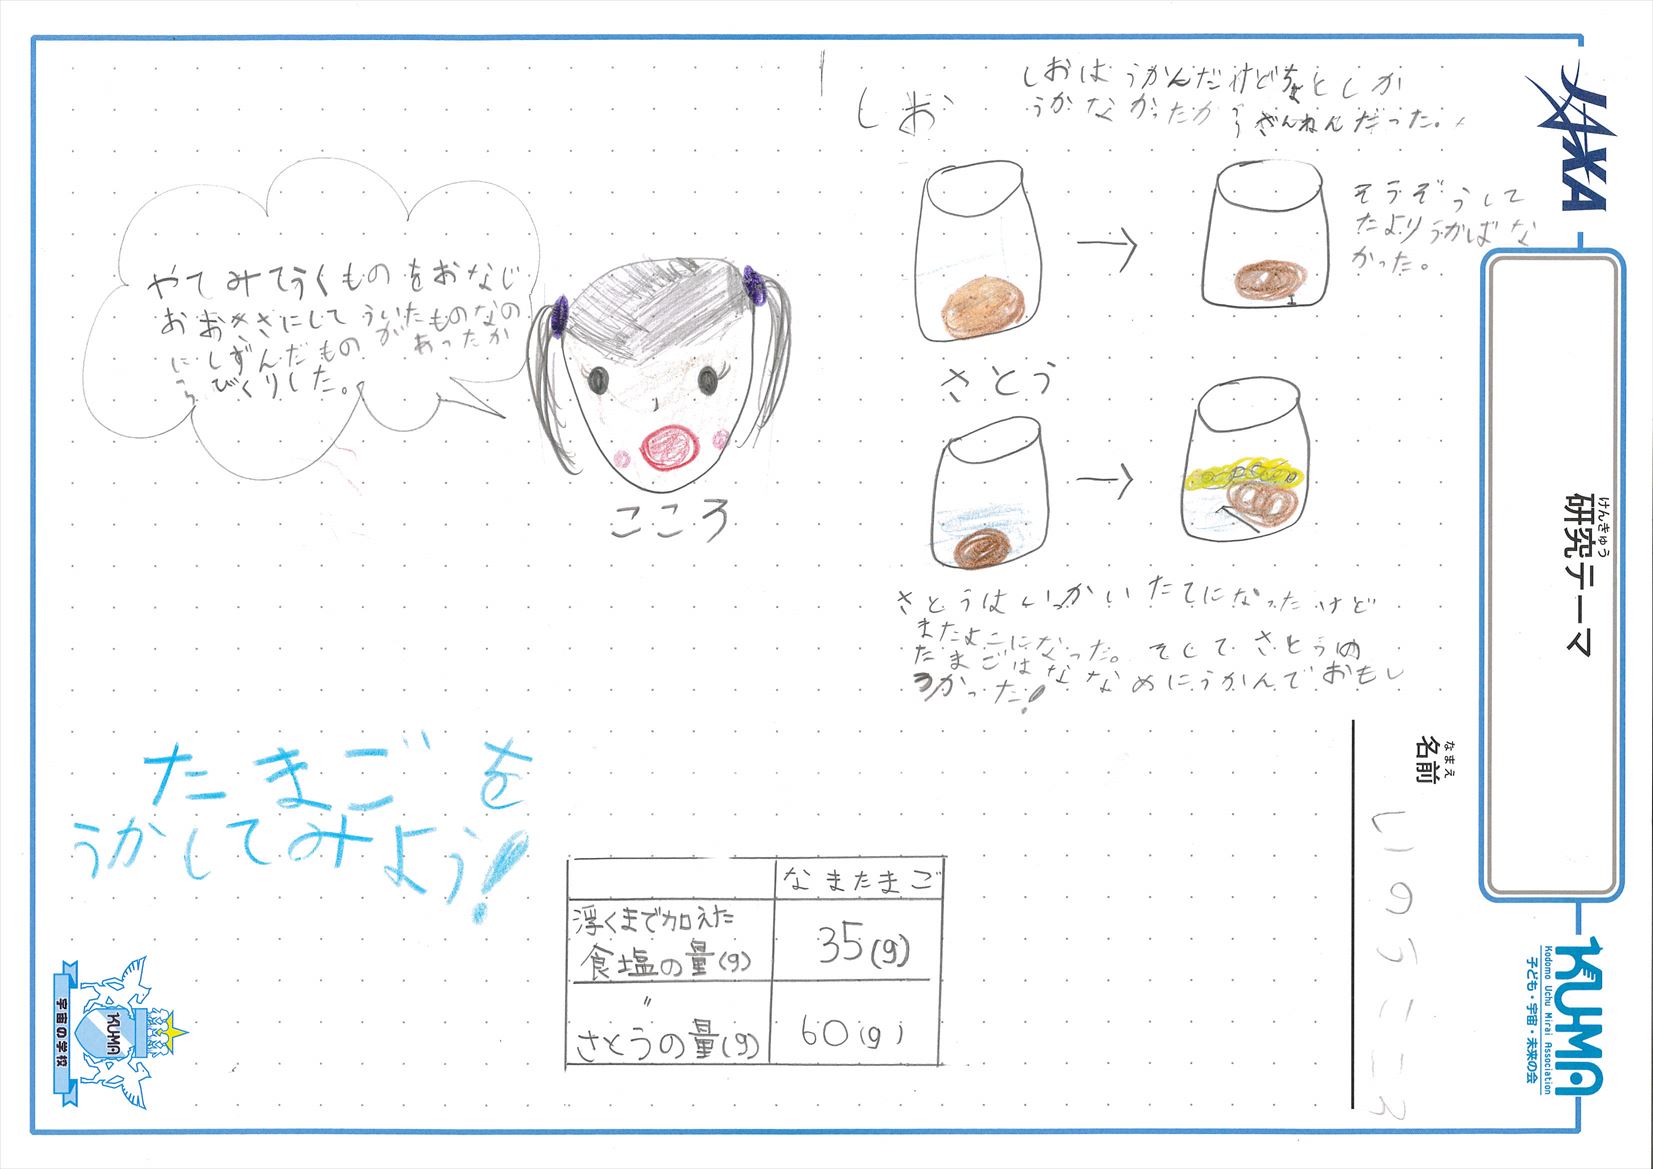 しお
しおは うかんだけどちょとしか
うかなかったから ざんねんだった。
そうぞうして
たよりうかばな
かった。
やてみてうくものをおなじ
おおきさにして ういたものなの
にしずんだものがあったか
ら びくりした。
こころ
さとう
さとうはいっかいたてになったけど
またよこになった。そして さとうの
たまごはななめにうかんでおもし
ろかった!
たまごを
うかしてみよう!
なまたまご
浮くまで加えた
食塩の量(g)
35(g)
〃
さとうの量(g)
60(g)
JAXA
けんきゅう
研究テーマ
なまえ
名前
いのうここ
KUMA
Kodomo Uchu Mirai Association
子ども・宇宙・未来の会
KUMA
宇宙の学校